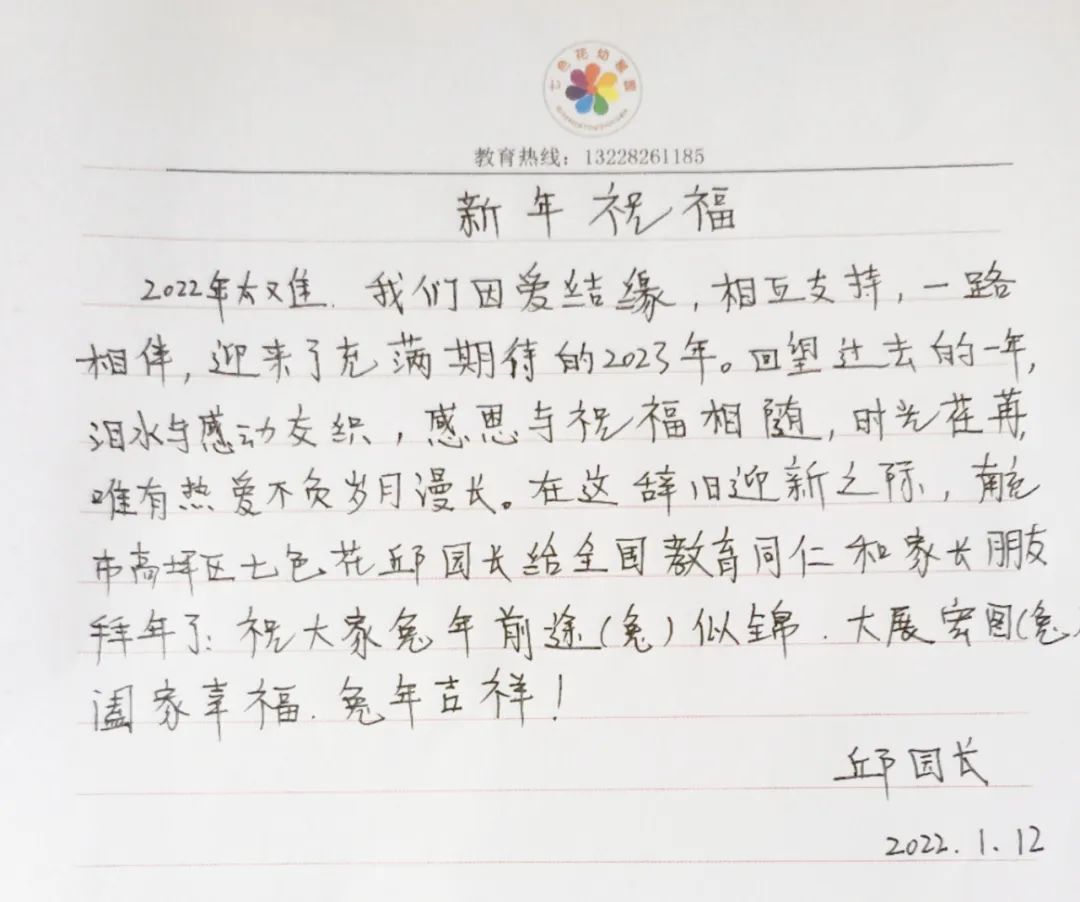 七色花幼稚园
教育热线：13228261185
新年祝福
2022年太难．我们因爱结缘，相互支持，一路
相伴，迎来了充满期待的2023年。回望过去的一年，
泪水与感动交织，感恩与祝福相随，时光荏苒，
唯有热爱不负岁月漫长。在这辞旧迎新之际，南充
市高坪区七色花邱园长给全国教育同仁和家长朋友
拜年了：祝大家兔年前途(兔)似锦．大展宏图(兔)
阖家幸福．兔年吉祥！
邱园长
2022.1.12